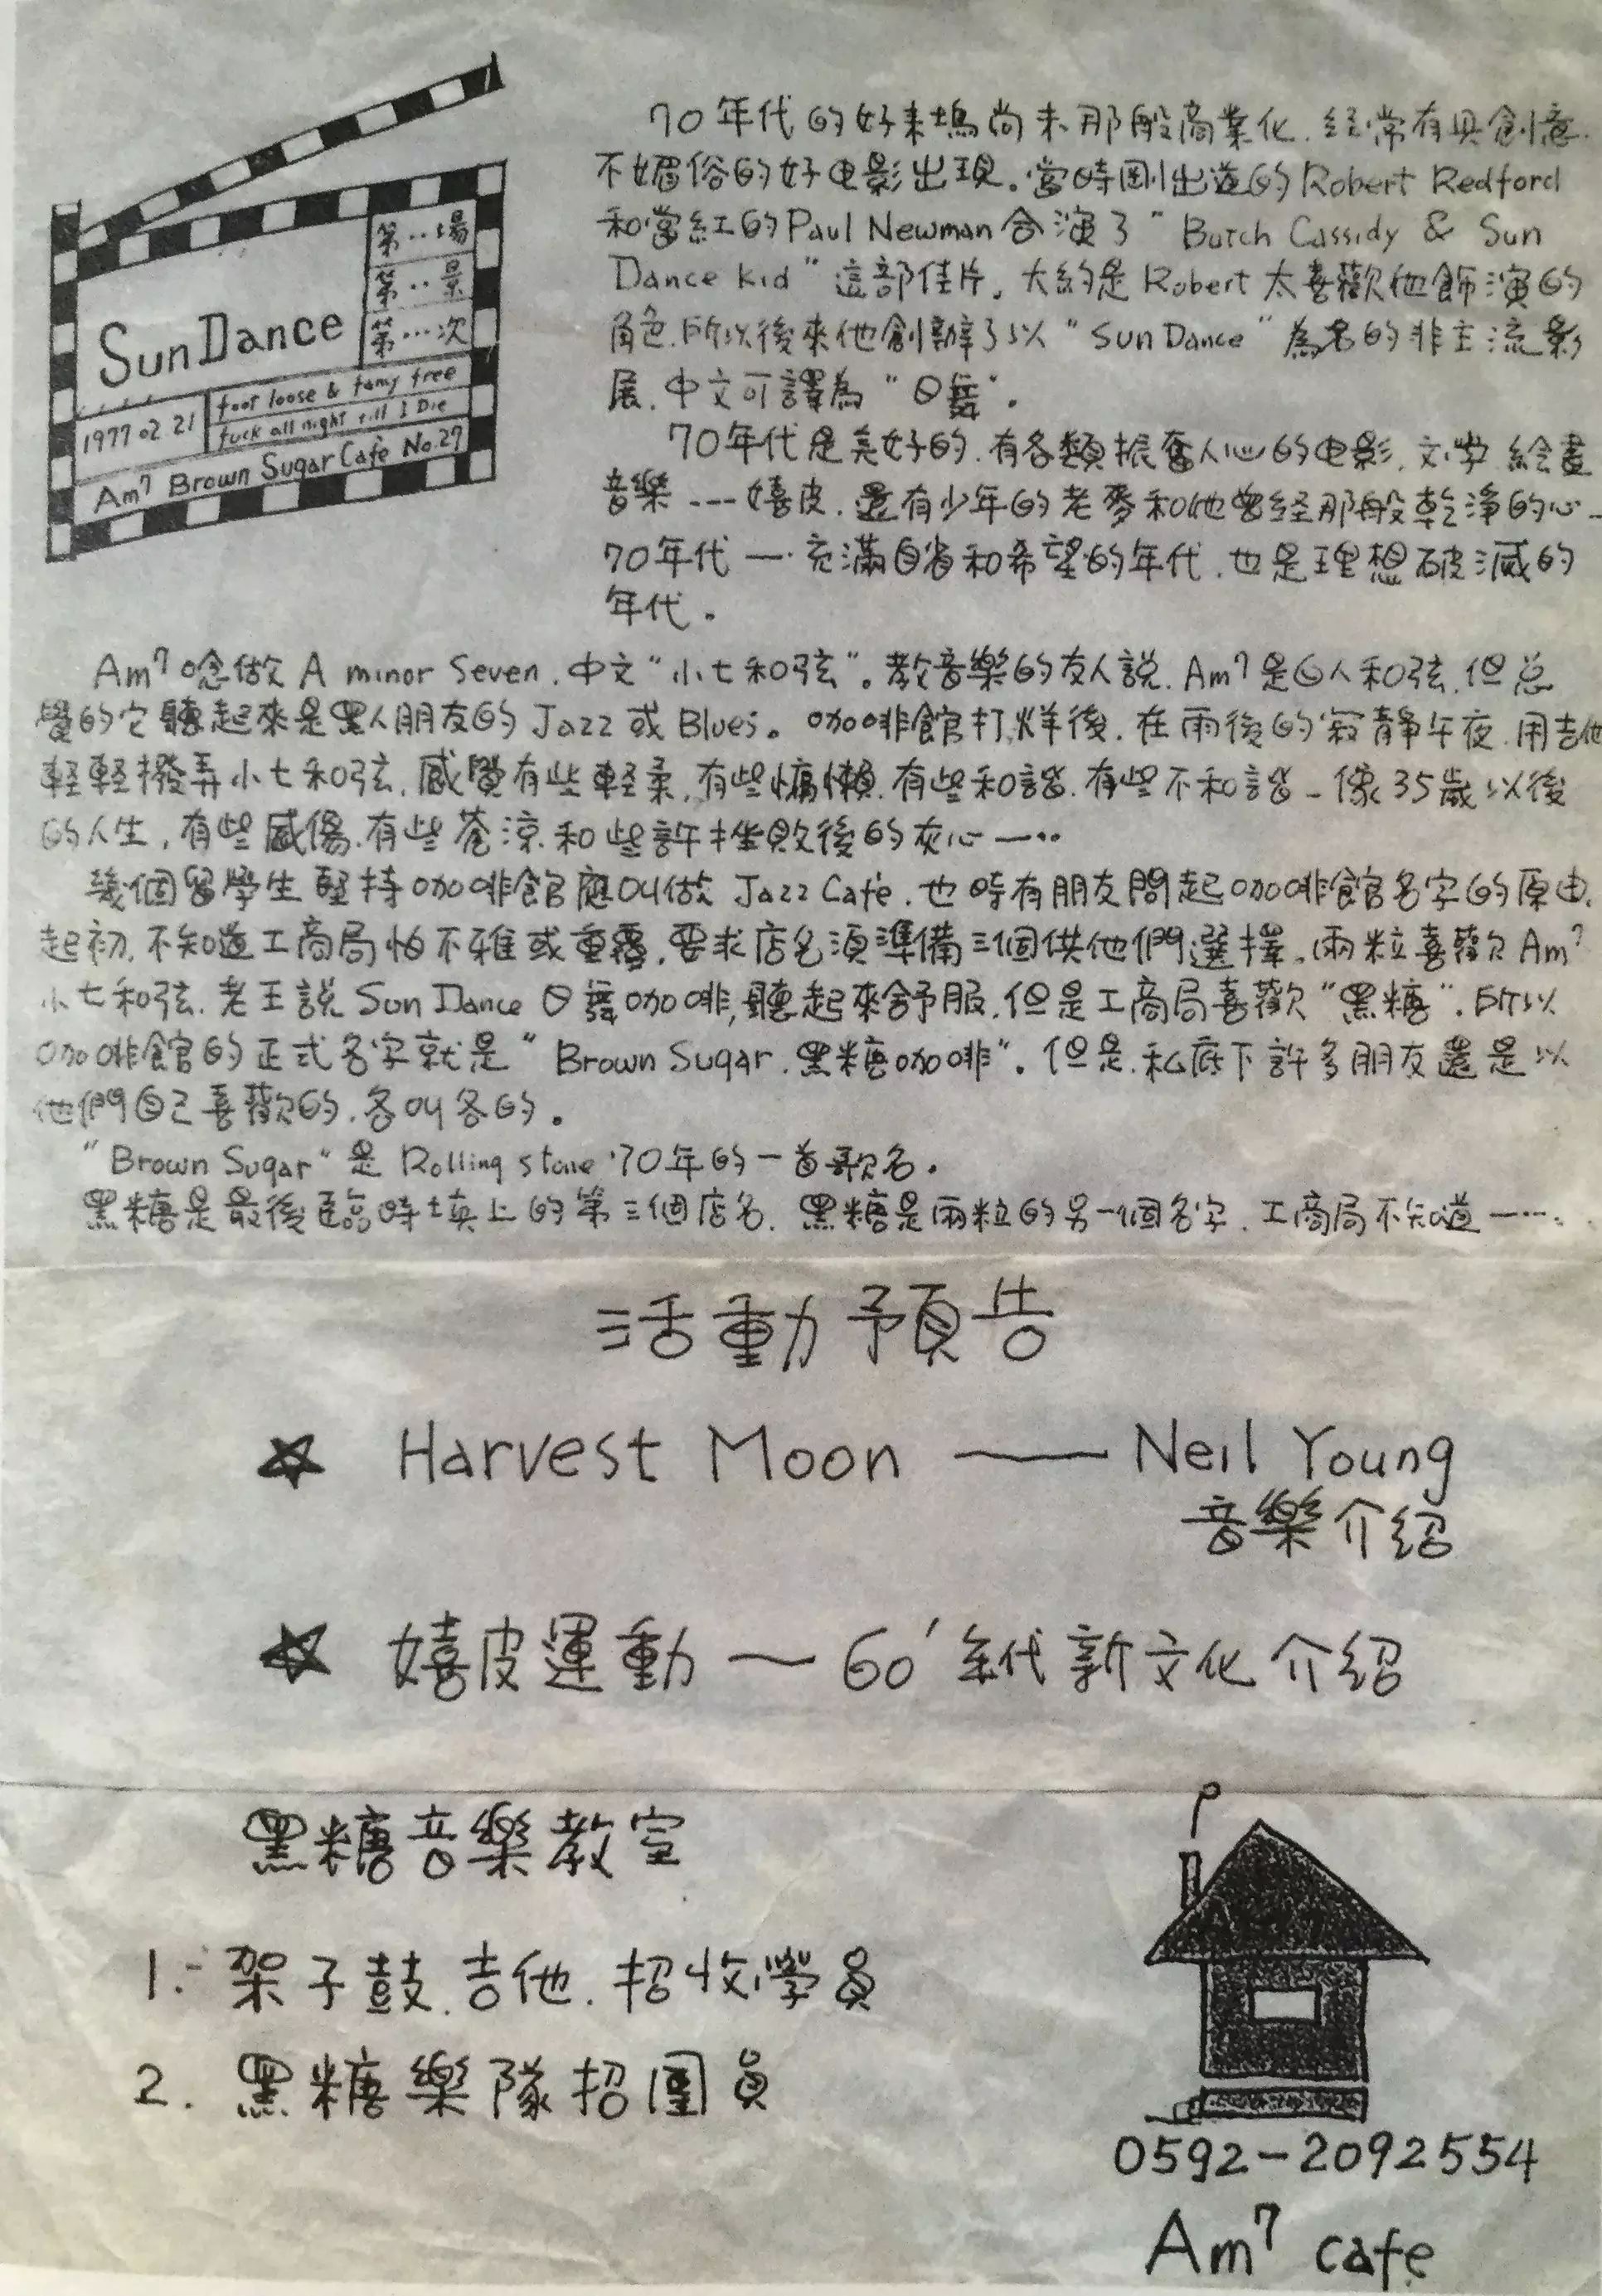 第‥場
第‥景
第…次
Sun Dance
1977 02 21
foot loose & famy free
fuck all night till I Die
Am⁷ Brown Sugar Cafe No.27
70年代的好來塢尚未那般商業化.經常有具創意.
不媚俗的好电影出現。當時剛出道的Robert Redford
和當紅的Paul Newman合演了"Butch Cassidy & Sun
Dance Kid"這部佳片。大約是Robert太喜歡他飾演的
角色.所以後來他創辦了以"Sun Dance"為名的非主流影
展.中文可譯為"日舞"。
70年代是美好的.有各類振奮人心的电影.文学 繪畫
音樂---嬉皮.還有少年的老麥和他曾经那般乾淨的心-
70年代一·充滿自省和希望的年代.也是理想破滅的
年代。
Am⁷唸做A minor Seven.中文"小七和弦"。教音樂的友人説.Am⁷是白人和弦.但总
覺的它聽起來是黑人朋友的Jazz或Blues。咖啡館打烊後.在雨後的寂靜午夜.用吉他
輕輕撥弄小七和弦.感覺有些輕柔.有些慵懶.有些和諧.有些不和諧-像35歲以後
的人生,有些感傷.有些蒼涼和些許挫敗後的灰心一‥
幾個留學生堅持咖啡館應叫做Jazz Cafe.也時有朋友問起咖啡館名字的原由.
起初.不知道工商局怕不雅或重覆.要求店名須準備三個供他們選擇。兩粒喜歡Am⁷
小七和弦.老王說Sun Dance日舞咖啡,聽起來舒服.但是工商局喜歡"黑糖".所以
咖啡館的正式名字就是"Brown Sugar.黑糖咖啡"。但是.私底下許多朋友還是以
他們自己喜歡的.各叫各的。
"Brown Sugar"是Rolling stone '70年的一首歌名。
黑糖是最後臨時填上的第三個店名.黑糖是兩粒的另一個名字.工商局不知道一…
活動預告
☆ Harvest Moon —— Neil Young
音樂介紹
☆ 嬉皮運動—60'年代新文化介紹
黑糖音樂教室
1.架子鼓.吉他.招收學員
2.黑糖樂隊招團員
0592-2092554
Am⁷ cafe